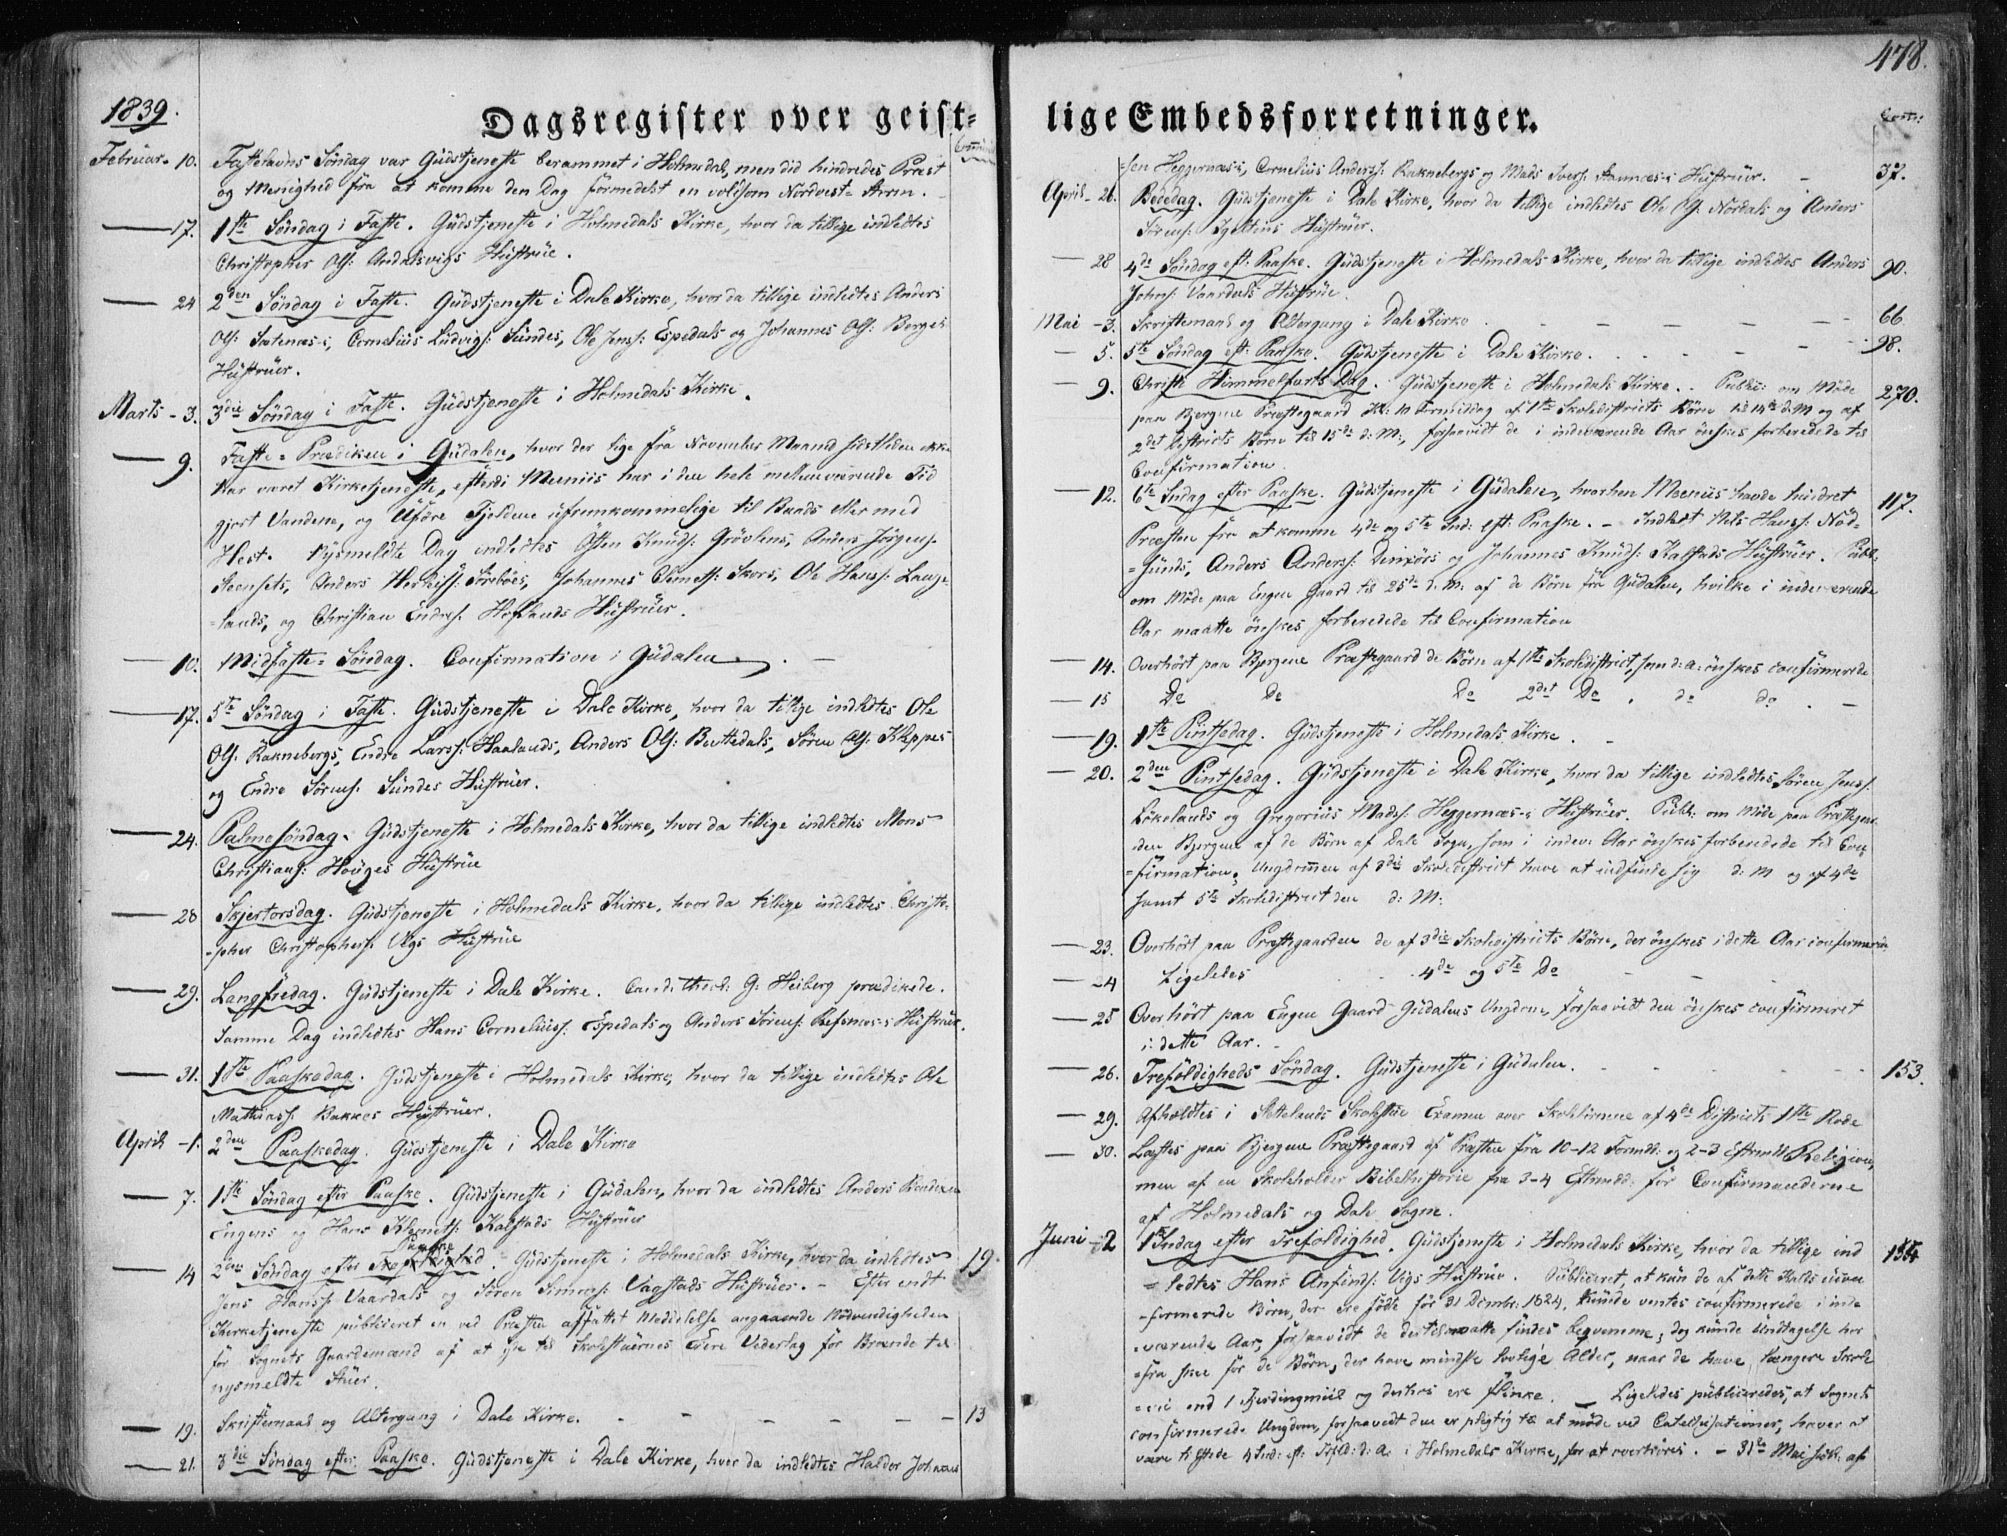 478.
1839.
Dagsregister over geist-
lige Embedsforretninger.
Februar. 10. Fastelavns Søndag var Gudstjeneste berammet i Holmedal, men did hindredes Præst
og Menighed fra at komme den Dag formedelst en voldsom Nordvest-Storm.
17. 1ste Søndag i Faste. Gudstjeneste i Holmedals Kirke, hvor da tillige indledtes
Christopher Ols: Andalsvigs Hustrue.
24 2den Søndag i Faste. Gudstjeneste i Dale Kirke, hvor da tillige indledtes Anders
Ols: Sætenæs-s, Cornelius Ludvigs: Sundes, Ole Jenss: Espedals og Johannes Ols: Berges
Hustruer.
Marts - 3. 3die Søndag i Faste. Gudstjeneste i Holmedals Kirke.
9. Faste-Prædiken i Guddalen, hvor der lige fra November Maaned sidstleden ikke
har været Kirketjeneste, efterdi Meeniis har i den hele mellemværende Tid
gjort Vandene, og Uføre Fjeldene ufremkommelige til Baads eller med
Hest. Nysmeldte Dag indledtes Østen Knuds: Grövlens, Anders Jörgens:
Steensets, Anders Herleifs: Strebøes, Johannes Clemets: Skors, Ole Hanss: Lange-
=lands, og Christian Endres: Hoflands Hustruer.
10. Midfaste-Søndag. Confirmation i Guddalen.
17. 5te Søndag i Faste. Gudstjeneste i Dale Kirke, hvor da tillige indledtes Ole
Ols: Raknebergs, Endre Larss: Haalands, Anders Ols: Bøttedals, Søren Ols: Kleppes
og Endre Sørens: Sundes Hustruer.
24. Palmesøndag. Gudstjeneste i Holmedals Kirke, hvor da tillige indledtes Mons
Christians: Houges Hustrue
28 Skjertorsdag. Gudstjeneste i Holmedals Kirke, hvor da tillige indledtes Christo-
=pher Christophers: Vigs Hustrue
29. Langfredag. Gudstjeneste i Dale Kirke. Cand: theol: G: Heiberg prædikede.
Samme Dag indledtes Hans Corneliuss: Espedals og Anders Sørens: Refsnæs-s Hustruer.
31. 1ste Paaskedag. Gudstjeneste i Holmedals Kirke, hvor da tillige indledtes Ole
Mathiass: Bakkes Hustruer.
April - 1. 2den Paaskedag. Gudstjeneste i Dale Kirke
7. 1ste Søndag efter Paaske. Gudstjeneste i Guddalen, hvor da indledtes Anders
Engens og Hans Klemets: Kalstads Hustruer
14 2den Søndag efter Paaske. Gudstjeneste i Holmedals Kirke, hvor da indledtes 19.
Jens Hanss: Vaardals og Søren Simons: Vagstads Hustruer. - Efter endt
Kirketjeneste publiceret en ved Præsten affattet Meddelelse angaaende Nødvendigheden
for Sognets Gaardemænd af at yde til Skolestuernes Eiere Vederlag for Brænde til
nysmeldte Stuer.
19. Skriftemaal og Altergang i Dale Kirke. - - - - - 13
21. 3die Søndag efter Paaske. Gudstjeneste i Dale Kirke, hvor da indledtes Haldor Johannes
=sen Heggernæs-s, Cornelius Anders: Raknebergs og Mads Ivers: Hustruer. - 37.
April - 26. Bededag. Gudstjeneste i Dale Kirke, hvor da tillige indledtes Ole Nordals og Anders
Sørens: Hustruer.
28 4de Søndag eft: Paaske. Gudstjeneste i Holmedals Kirke, hvor da tillige indledtes Anders 90.
Johns: Vaardals Hustrue.
Mai - 3. Skriftemaal og Altergang i Dale Kirke. - - - - 66
5. 5te Søndag eft: Paaske. Gudstjeneste i Dale Kirke. - - - 98.
9. Christi Himmelfarts Dag. Gudstjeneste i Holmedals Kirke. . Public: om Møde 270.
paa Bjergene Præstegaard Kl: 10 Formiddag af 1ste Skoledistricts Børn til 14de d: M og af
2det Districts Børn til 15de d: M:, forsaavidt de i indeværende Aar ønskes forberedede til
Confirmation.
12. 6te Sndag efter Paaske. Gudstjeneste i Guddalen, hvorhen Meeniis havde hindret 117.
Præsten fra at komme 4de og 5te Snd: eft: Paaske. - Indledt Nils Hanss: Nød-
=sunds, Anders Anders: og Johannes Knuds: Kalstads Hustruer. Publ:
om Møde paa Engen Gaard til 25de d. M. af de Børn fra Guddalen, hvilke i indeværende
Aar maatte ønskes forberedede til Confirmation
14. Overhørt paa Bjergene Præstegaard de Børn af 1ste Skoledistrict, som d: a: ønskes confirmerede
15 Do Do Do 2det Do . do do . -
19. 1ste Pintsedag. Gudstjeneste i Holmedals Kirke.
20. 2den Pintsedag. Gudstjeneste i Dale Kirke, hvor da tillige indledtes Søren Jenss:
Løkelands og Gregorius Madss: Heggernæs-s Hustruer. Publ: om Møde paa Præstegaar-
den Bjergene af de Børn af Dale Sogn, som i indev: Aar ønskes forberedede til Con-
=firmation. Ungdommen af 3die Skoledistrict have at indfinde sig d: M og af 4de
samt 5te Skoledistrict den d: M:
23. Overhørt paa Præstegaarden de af 3die Skoledistricts Børn, der ønskes i dette Aar confirmerede
24 Ligeledes 4de og 5te Do
25 Overhørt paa Engen Gaard Guddalens Ungdom, forsaavidt den ønskes confirmeret
i dette Aar.
26. Trefoldigheds Søndag. Gudstjeneste i Guddalen. - - - 153.
29. Afholdtes i Stettelands Skolestue Examen over Skolebørnene af 4de Districts 1ste Rode
30. Læstes paa Bjergene Præstegaard af Præsten fra 10-12 Formd: og 2-3 Eftermd: Religion,
men af en Skoleholder Bibelhistorie fra 3-4 Eftermdd: for Confirmanderne
af Holmedals og Dale Sogne.
Juni - 2 1ste Sndag efter Trefoldighed. Gudstjeneste i Holmedals Kirke, hvor da tillige ind 154
=ledtes Hans Anfinds: Vigs Hustrue. Publiceret, at kun de af dette Kalds ucon
=firmerede Børn, der ere fødte før 31 Decmbr: 1824, kunde ventes confirmerede i inde
=værende Aar, forsaavidt de dertil maatte findes beqvemme; dog kunde Undtagelse her
=fra skee for de Børn, der have mindste lovlige Alder, naar de have længere Skole
=vei end 1 Fjerdingmiil og derhos ere flinke. - Ligeledes publiceredes, at Sognets
confirmerede Ungdom, forsaavidt den er pligtig til at møde ved Catechisationer, haver at
være tilstede 4 Snd: eft: Tref: d: a: i Holmedals Kirke, for at overhøres. - 31te Mai af